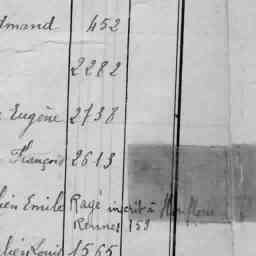 dmond 452
2282
Eugène 2738
François 2613
ien Emile Rayé inscrit à Honfleur
Rennes 153
lien Louis 1565